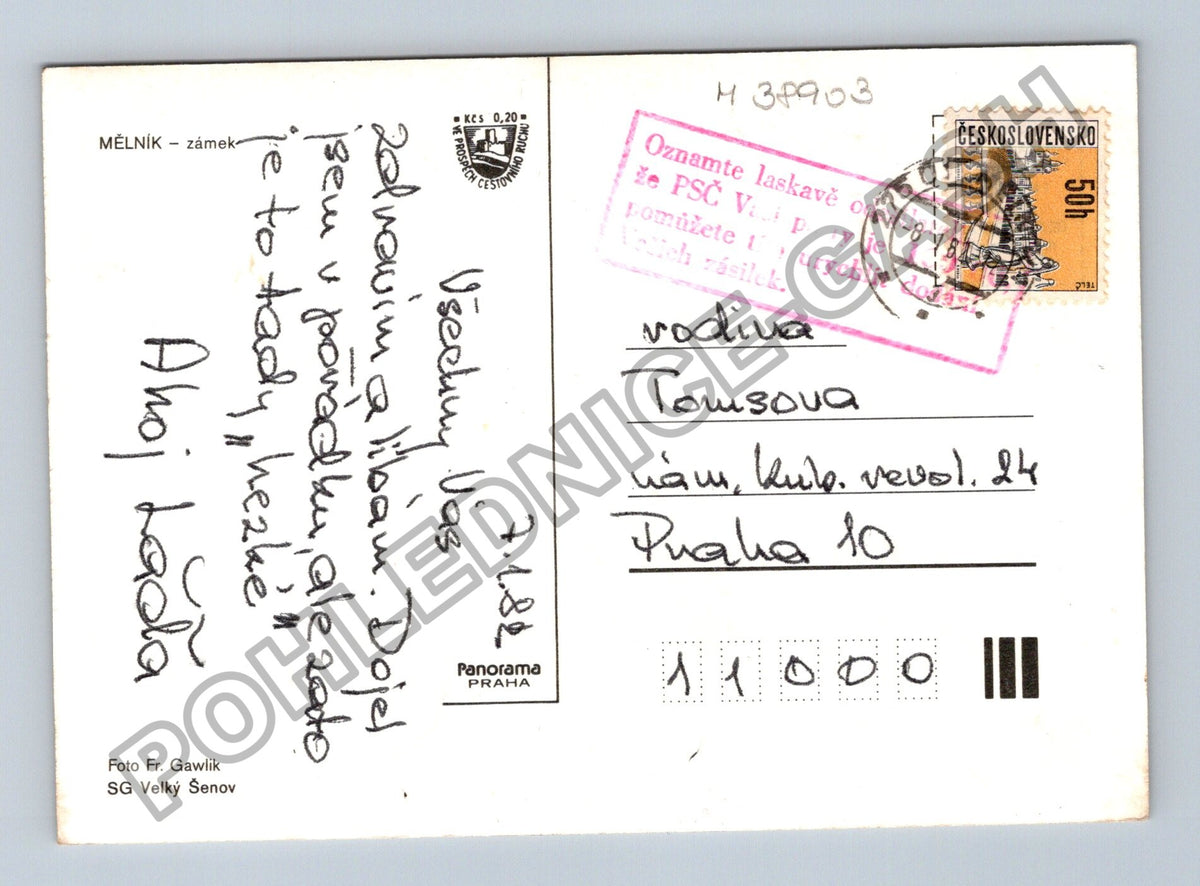 MĚLNÍK – zámek
Kčs 0,20
VE PROSPĚCH CESTOVNÍHO RUCHU
7.1.82
Všechny Vás
zdravím a líbám. Dojel
jsem v pořádku, ale zato
je to tady „hezké"
Ahoj Láďa
Panorama
PRAHA
Foto Fr. Gawlik
SG Velký Šenov
M 38903
ČESKOSLOVENSKO
50h
TELČ
Oznamte laskavě
že PSČ je
pomůžete urychlit
Vašich zásilek.
rodina
Tomsova
nám. Kub. revol. 24
Praha 10
11000
POHLEDNICE-GACH